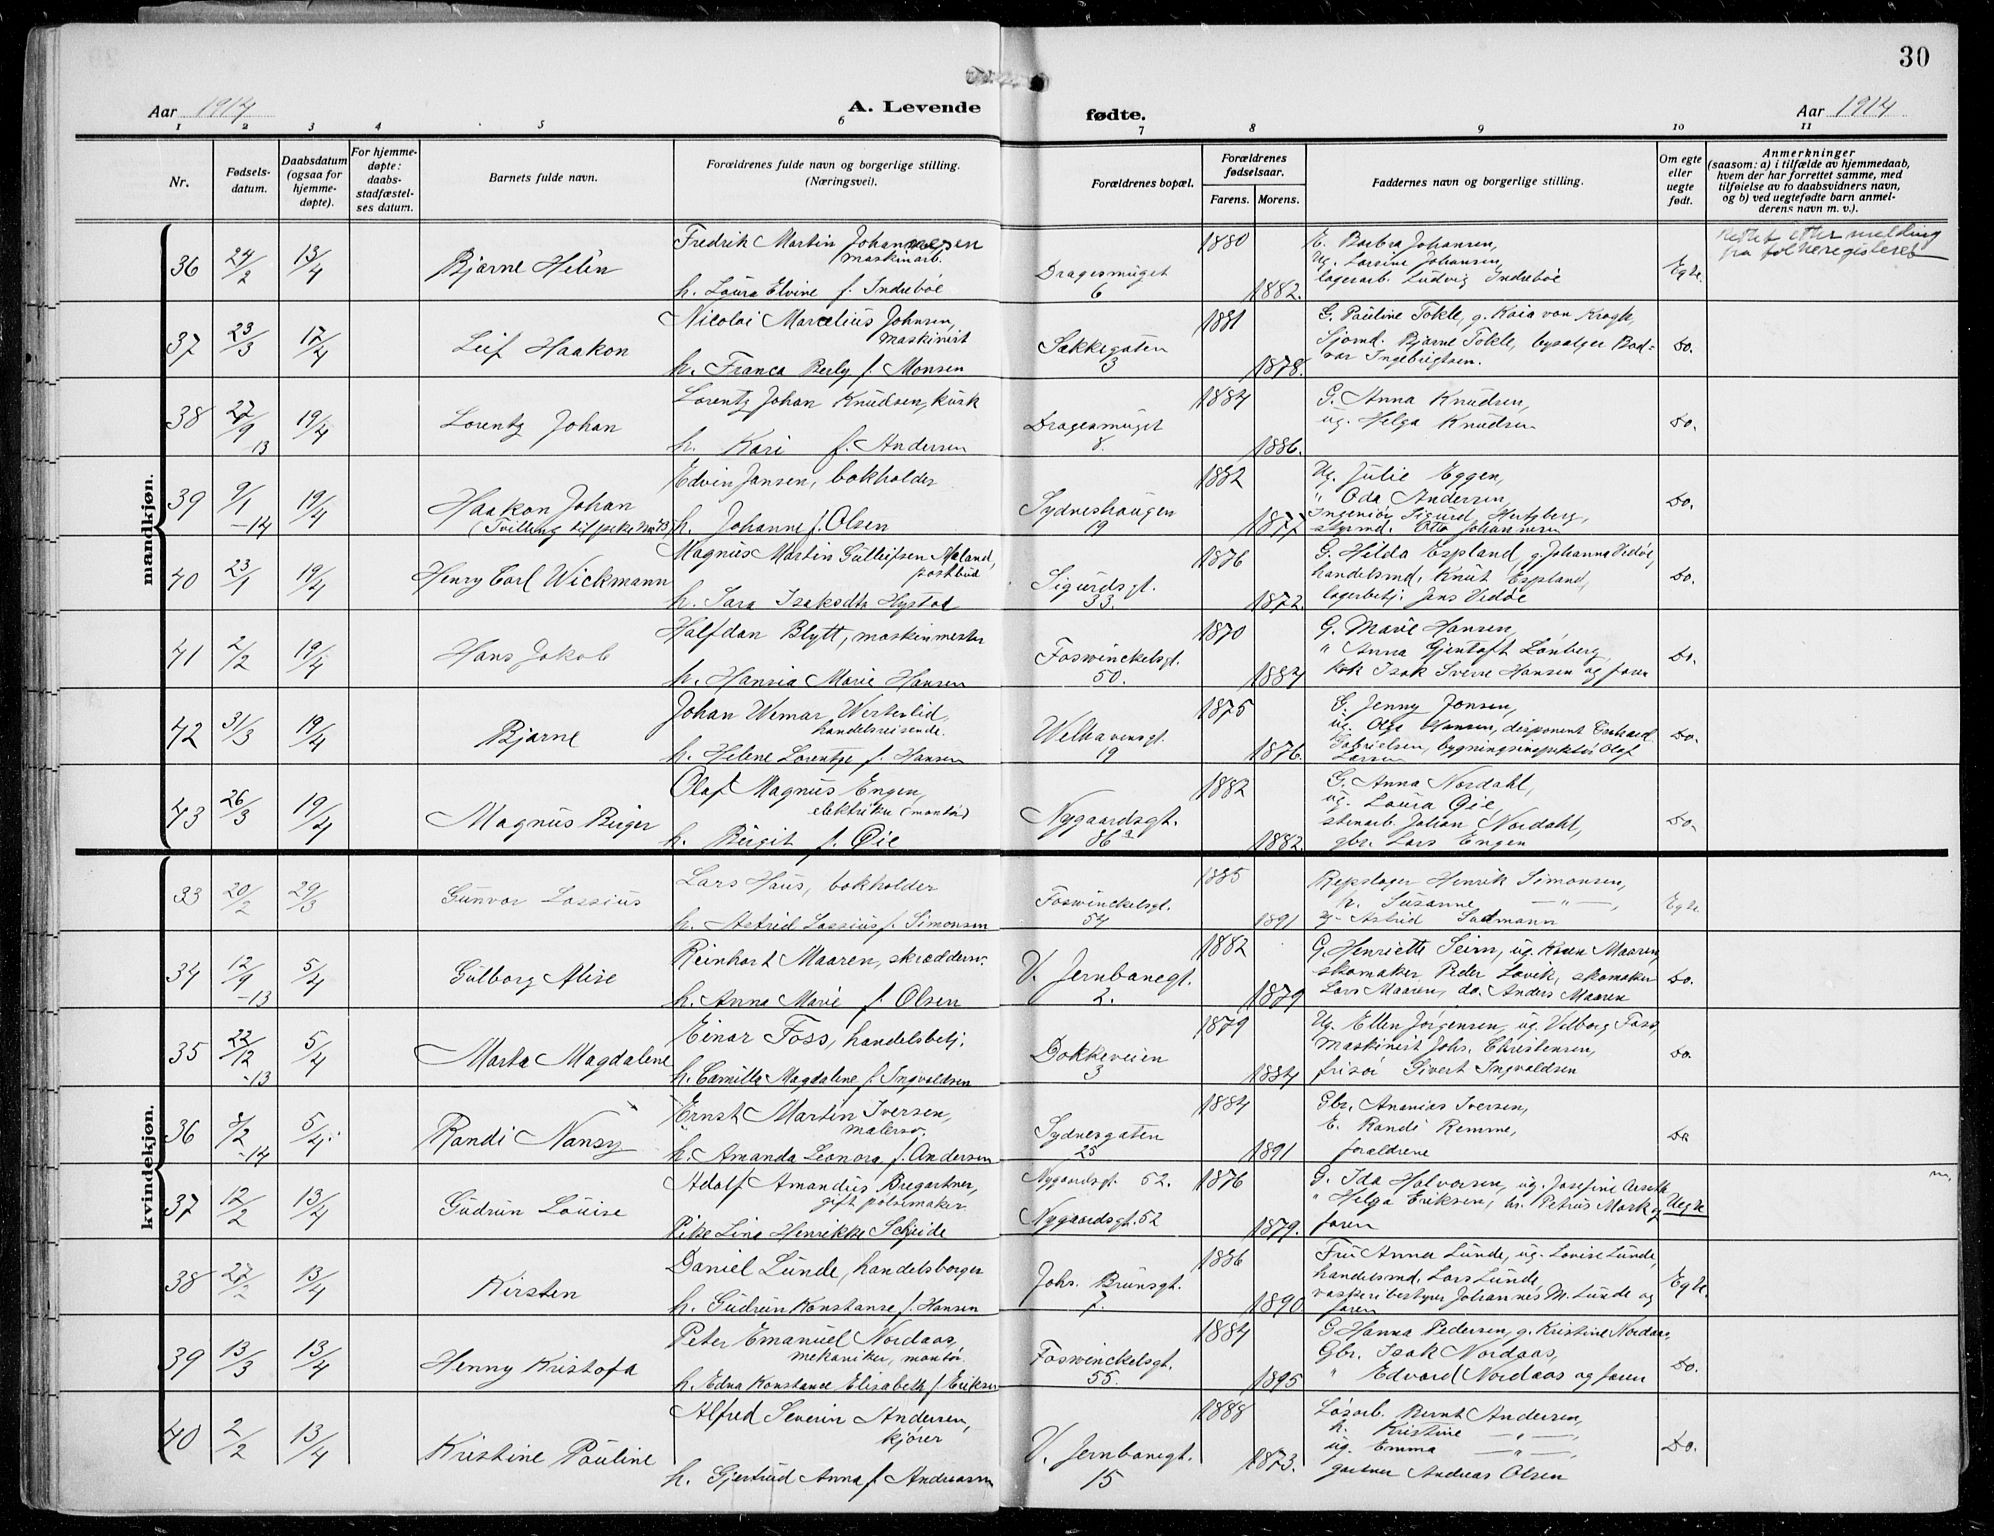 30
Aar 1914
A. Levende
fødte.
Aar 1914
1 2 3 4 5 6 7 8 9 10 11
Nr.
Fødsels-
datum.
Daabsdatum
(ogsaa for
hjemme-
døpte).
For hjemme-
døpte:
daabs-
stadfæstel-
ses datum.
Barnets fulde navn.
Forældrenes fulde navn og borgerlige stilling.
(Næringsvei).
Forældrenes bopæl.
Forældrenes
fødselsaar.
Farens. Morens.
Faddernes navn og borgerlige stilling.
Om egte
eller
uegte
født.
Anmerkninger
(saasom: a) i tilfælde av hjemmedaab,
hvem der har forrettet samme, med
tilføielse av to daabsvidners navn,
og b) ved uegtefødte barn anmel-
derens navn m. v.).
mandkjøn.
36 24/2 13/4 Bjarne Helén
Fredrik Martin Johannesen
maskinarb.
h. Laura Elvine f. Indrebøe
Dragesmuget
6
1880
1882.
E. Barbra Johansen,
Ug. Larsine Johansen,
lagerarb. Ludvig Indrebøe
Egte.
Rettet etter melding
fra folkeregisteret
37 23/3 17/4 Leif Haakon
Nicolai Marcelius Johnsen,
maskinist
h. Franca Berly f. Monsen
Sækkegaten
3
1881
1878.
G. Pauline Tokle, g. Kaia von Krogh,
Sjømd. Bjarne Tokle, bysælger Bad-
var Ingebrigtsen.
Do.
38 27/9 13 19/4 Lorentz Johan
Lorentz Johan Knudsen, kusk
h. Kari f. Andersen
Dragesmuget
8.
1884
1886.
G. Anna Knudsen,
ug. Helga Knudsen
Do.
39 9/1 -14 19/4 Haakon Johan
(Tvilling til pike No 43)
Edvin Jansen, bokholder
h. Johanne f. Olsen
Sydneshaugen
19
1882
1877.
Ug. Julie Eggen,
" Oda Andersen,
Ingeniør Sigurd Hertzberg,
styrmd. Otto Johannesen
Do.
40 23/1 19/4 Henry Carl Wickmann
Magnus Martin Gulleifsen Aaland,
postbud
h. Sara Isaksdtr Hystad
Sigurdsgt.
33.
1876
1872.
G. Hilda Espland, g. Johanna Vedøe,
handelsmd. Knut Espland,
lagerbetj. Jens Vedøe
Do.
41 2/2 19/4 Hans Jakob
Halfdan Blytt, maskinmester
h. Hansia Marie Hansen
Foswinckelsgt.
50.
1870
1884
G. Marie Hansen,
" Anna Gjentoft Lønberg,
kok Isak Sverre Hansen og faren
Do.
42 31/3 19/4 Bjarne
Johan Wemar Westerlid,
handelsreisende.
h. Helene Lorentze f. Hansen
Welhavensgt.
19
1875
1876.
G. Jenny Jonsen,
ug. Olga Hansen, disponent
Gabrielsen, bygningsinspektør Olaf
Larsen
Do.
43 26/3 19/4 Magnus Birger
Olaf Magnus Engen,
elektriker (montør)
h. Birgit f. Øie
Nygaardsgt.
86 a
1882
1882.
G. Anna Nordahl,
ug. Laura Øie,
stenarb. Johan Nordahl,
gbr. Lars Engen
Do.
kvindekjøn.
33 20/2 29/3 Gunvor Lassius
Lars Haus, bokholder
h. Astrid Lassius f. Simonsen
Foswinckelsgt.
54
1885
1891
Repslager Henrik Simonsen,
h. Susanne — " —,
g. Astrid Sadmann
Egte
34 12/9 -13 5/4 Gulborg Alise
Reinhart Maaren, skræddersv.
h. Anna Marie f. Olsen
V. Jernbanegt.
2.
1882
1879
G. Henriette Seim, ug. Karen Maaren,
skomaker Peder Løvik, skomaker
Lars Maaren, do. Anders Maaren
Do.
35 22/12 -13 5/4 Marta Magdalene
Einar Foss, handelsbetj.
h. Camilla Magdalene f. Ingvaldsen
Dokkeveien
3
1879
1884
Ug. Ellen Jørgensen, ug. Valborg Foss,
Maskinist Johs. Christensen,
frisør Sivert Ingvaldsen
Do.
36 8/2 -14 5/4. Randi Nansy
Ernst Martin Iversen,
malersv.
h. Amanda Leonora f. Andersen
Sydnesgaten
25
1884
1891
Gbr. Ananias Iversen,
E. Randi Remme,
forældrene
Do
37 12/2 13/4 Gudrun Louise
Adolf Amandus Bregartner,
gift pølsemaker
Pike Lina Henrikke Scheide
Nygaardsgt. 52.
Nygaardsgt. 52
1876
1879.
G. Ida Halvorsen, ug. Josefine Arseth
" Helga Eriksen, hr. Petrus Mork og
faren
Uegte
38 27/2 13/4 Kirsten
Daniel Lunde, handelsborger
h. Gudrun Konstanse f. Hansen
Johs. Brunsgt.
7.
1886
1890
Fru Anna Lunde, ug. Lovise Lunde,
handelsmd. Lars Lunde,
vaskeribestyrer Johannes M. Lunde og
faren
Egte.
39 13/3 13/4 Henny Kristofa
Peter Emanuel Nordaas,
mekaniker, montør.
h. Edna Konstance Elisabeth f. Eriksen
Foswinckelsgt.
55.
1884
1895
G. Hanna Pedersen, g. Kristine Nordaas,
Gbr. Isak Nordaas,
" Edvard Nordaas og faren
Do.
40 2/2 13/4 Kristine Pauline
Alfred Severin Andersen,
kjører
h. Gjertrud Anna f. Andreassen
V. Jernbanegt.
15
1888
1873.
Løsarb. Bernt Andersen,
h. Kristine — " —,
ug. Emma — " —,
gartner Andreas Olsen
Do.